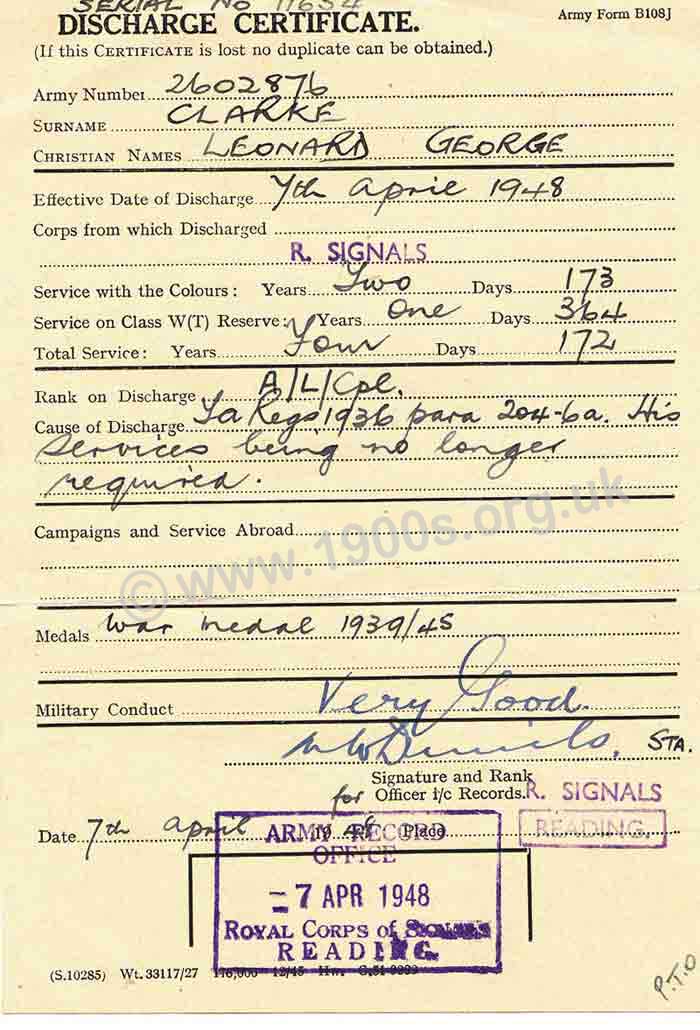 SERIAL No 11654
DISCHARGE CERTIFICATE.
Army Form B108J
(If this CERTIFICATE is lost no duplicate can be obtained.)
Army Number 2602876
SURNAME CLARKE
CHRISTIAN NAMES LEONARD GEORGE
Effective Date of Discharge 7th April 1948
Corps from which Discharged
R. SIGNALS
Service with the Colours: Years Two Days 173
Service on Class W(T) Reserve: Years One Days 364
Total Service: Years Four Days 172
Rank on Discharge A/L/Cpl.
Cause of Discharge Ta Regs 1936 para 204-6a. His
services being no longer
required.
Campaigns and Service Abroad
© www.1900s.org.uk
Medals War medal 1939/45
Military Conduct Very Good.
STA.
Signature and Rank
for Officer i/c Records.
R. SIGNALS
READING.
Date 7th April 1948 Place
ARMY RECORD
OFFICE
-7 APR 1948
ROYAL CORPS of SIGNALS
READING.
(S.10285) Wt. 33117/27 12/45
P.T.O